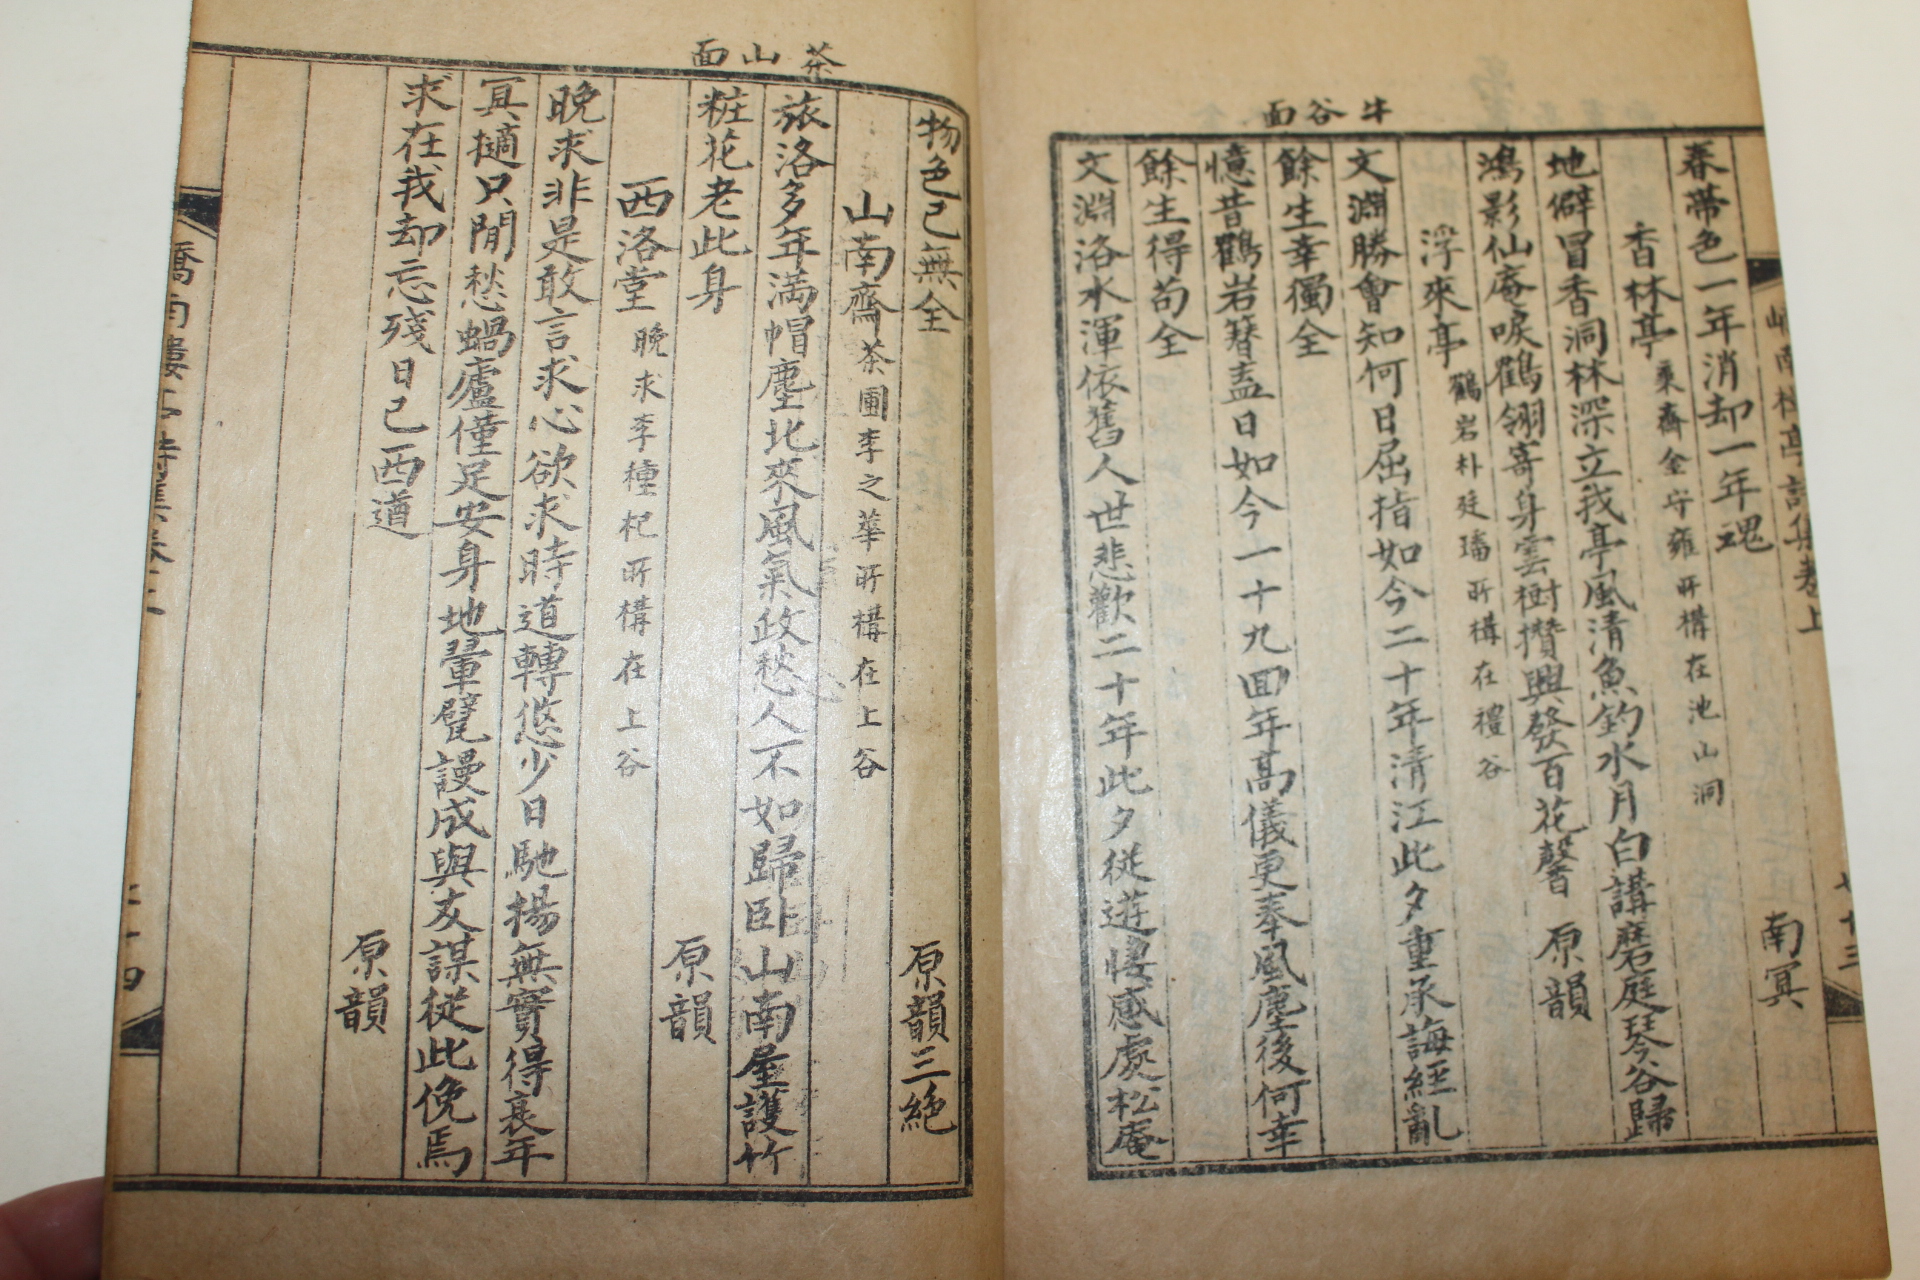 嶠南樓亭詩集卷上
春帶色一年消却一年魂 南冥
香林亭 東齋金守雍所構在池山洞
地僻冒香洞林深立我亭風清魚釣水月白講磨庭琴谷歸
鴻影仙庵唳鶴翎寄身雲樹攢興發百花馨 原韻
浮來亭 鶴岩朴廷璠所構在禮谷
文淵勝會知何日屈指如今二十年清江此夕重承誨經亂
餘生幸獨全
憶昔鶴岩簪盍日如今一十九回年高儀更奉風塵後何幸
餘生得苟全
文淵洛水渾依舊人世悲歡二十年此夕從遊悽感處松庵
牛谷面
物色已無全 原韻三絶
茶山面
山南齋 茶圃李之華所構在上谷
旅洛多年满帽塵北來風氣政愁人不如歸臥山南屋護竹
粧花老此身
西洛堂 晩求李種杞所構在上谷 原韻
晩求非是敢言求心欲求時道轉悠少日馳揚無實得衰年
冥擿只閒愁蝸廬僅足安身地翬甓謾成與友謀從此俛焉
求在我却忘殘日已西遒 原韻